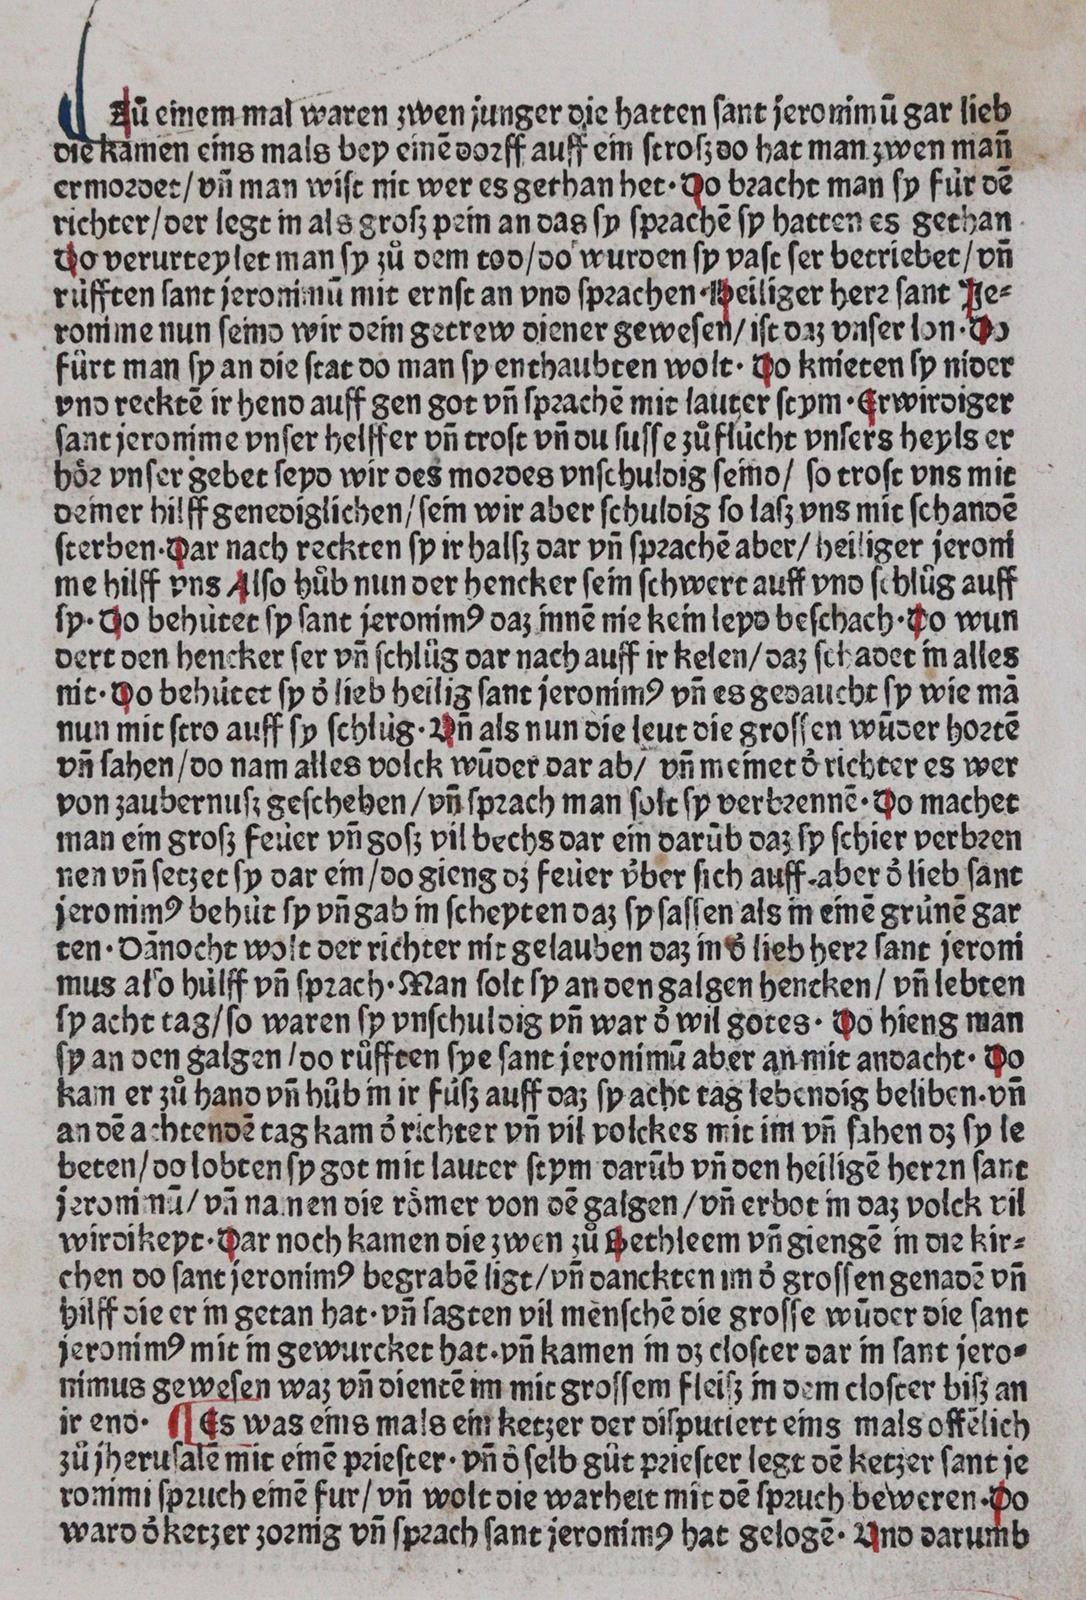 Zů einem mal waren zwen junger die hatten sant jeronimū gar lieb
die kamen eins mals bey einē dorff auff ein strosz do hat man zwen mañ
ermordet/vñ man wist nit wer es gethan het·Do bracht man sy für dē
richter/der legt in als grosz pein an das sy sprachē sy hatten es gethan
Do verurteylet man sy zů dem tod/do wurden sy vast ser betriebet/vñ
rüfften sant jeronimū mit ernst an vnd sprachen·Heiliger herr sant Je⸗
ronime nun seind wir dein getrew diener gewesen/ist daz vnser lon·Do
fürt man sy an die stat do man sy enthaubten wolt·Do knieten sy nider
vnd recktē ir hend auff gen got vñ sprachē mit lauter stym·Erwirdiger
sant jeronime vnser helffer vñ trost vñ du susse zůflücht vnsers heyls er
hör vnser gebet seyd wir des mordes vnschuldig seind/ so trost vns mit
deiner hilff genediglichen/sein wir aber schuldig so lasz vns mit schandē
sterben·Dar nach reckten sy ir halsz dar vñ sprachē aber/heiliger jeroni
me hilff vns Also hůb nun der hencker sein schwert auff vnd schlůg auff
sy·Do behütet sy sant jeronimꝰ daz innē nie kein leyd beschach·Do wun
dert den hencker ser vñ schlůg dar nach auff ir kelen/daz schadet in alles
nit·Do behütet sy d̕ lieb heilig sant jeronimꝰ vñ es gedaucht sy wie mā
nun mit stro auff sy schlüg·Vñ als nun die leut die grossen wūder hortē
vñ sahen/do nam alles volck wūder dar ab/ vñ meinet d̕ richter es wer
von zaubernusz geschehen/vñ sprach man solt sy verbrennē·Do machet
man ein grosz feüer vñ gosz vil bechs dar ein darūb daz sy schier verbren
nen vñ setzet sy dar ein/do gieng dz feüer über sich auff·aber d̕ lieb sant
jeronimꝰ behüt sy vñ gab in scheyten daz sy sassen als in einē grünē gar
ten·Dānocht wolt der richter nit gelauben daz in d̕ lieb herr sant jeroni
mus also hülff vñ sprach·Man solt sy an den galgen hencken/ vñ lebten
sy acht tag/so waren sy vnschuldig vñ war d̕ wil gotes·Do hieng man
sy an den galgen/do růfften sye sant jeronimū aber an mit andacht·Do
kam er zů hand vñ hůb in ir füsz auff daz sy acht tag lebendig beliben·vñ
an dē achtendē tag kam d̕ richter vñ vil volckes mit im vñ sahen dz sy le
beten/do lobten sy got mit lauter stym darūb vñ den heiligē herrn sant
jeronimū/vñ namen die römer von dē galgen/vñ erbot in daz volck vil
wirdikeyt·Dar noch kamen die zwen zů Bethleem vñ giengē in die kir⸗
chen do sant jeronimꝰ begrabē ligt/vñ danckten im d̕ grossen genadē vñ
hilff die er in getan hat·vñ sagten vil menschē die grosse wūder die sant
jeronimꝰ mit in gewurcket hat·vñ kamen in dz closter dar in sant jero⸗
nimus gewesen waz vñ dientē im mit grossem fleisz in dem closter bisz an
ir end· ¶Es was eins mals ein ketzer der disputiert eins mals offēlich
zů jherusalē mit einē priester·vñ d̕ selb gůt priester legt dē ketzer sant je
ronimi spruch einē fur/vñ wolt die warheit mit dē spruch beweren·Do
ward d̕ ketzer zornig vñ sprach sant jeronimꝰ hat gelogē·Vnd darumb